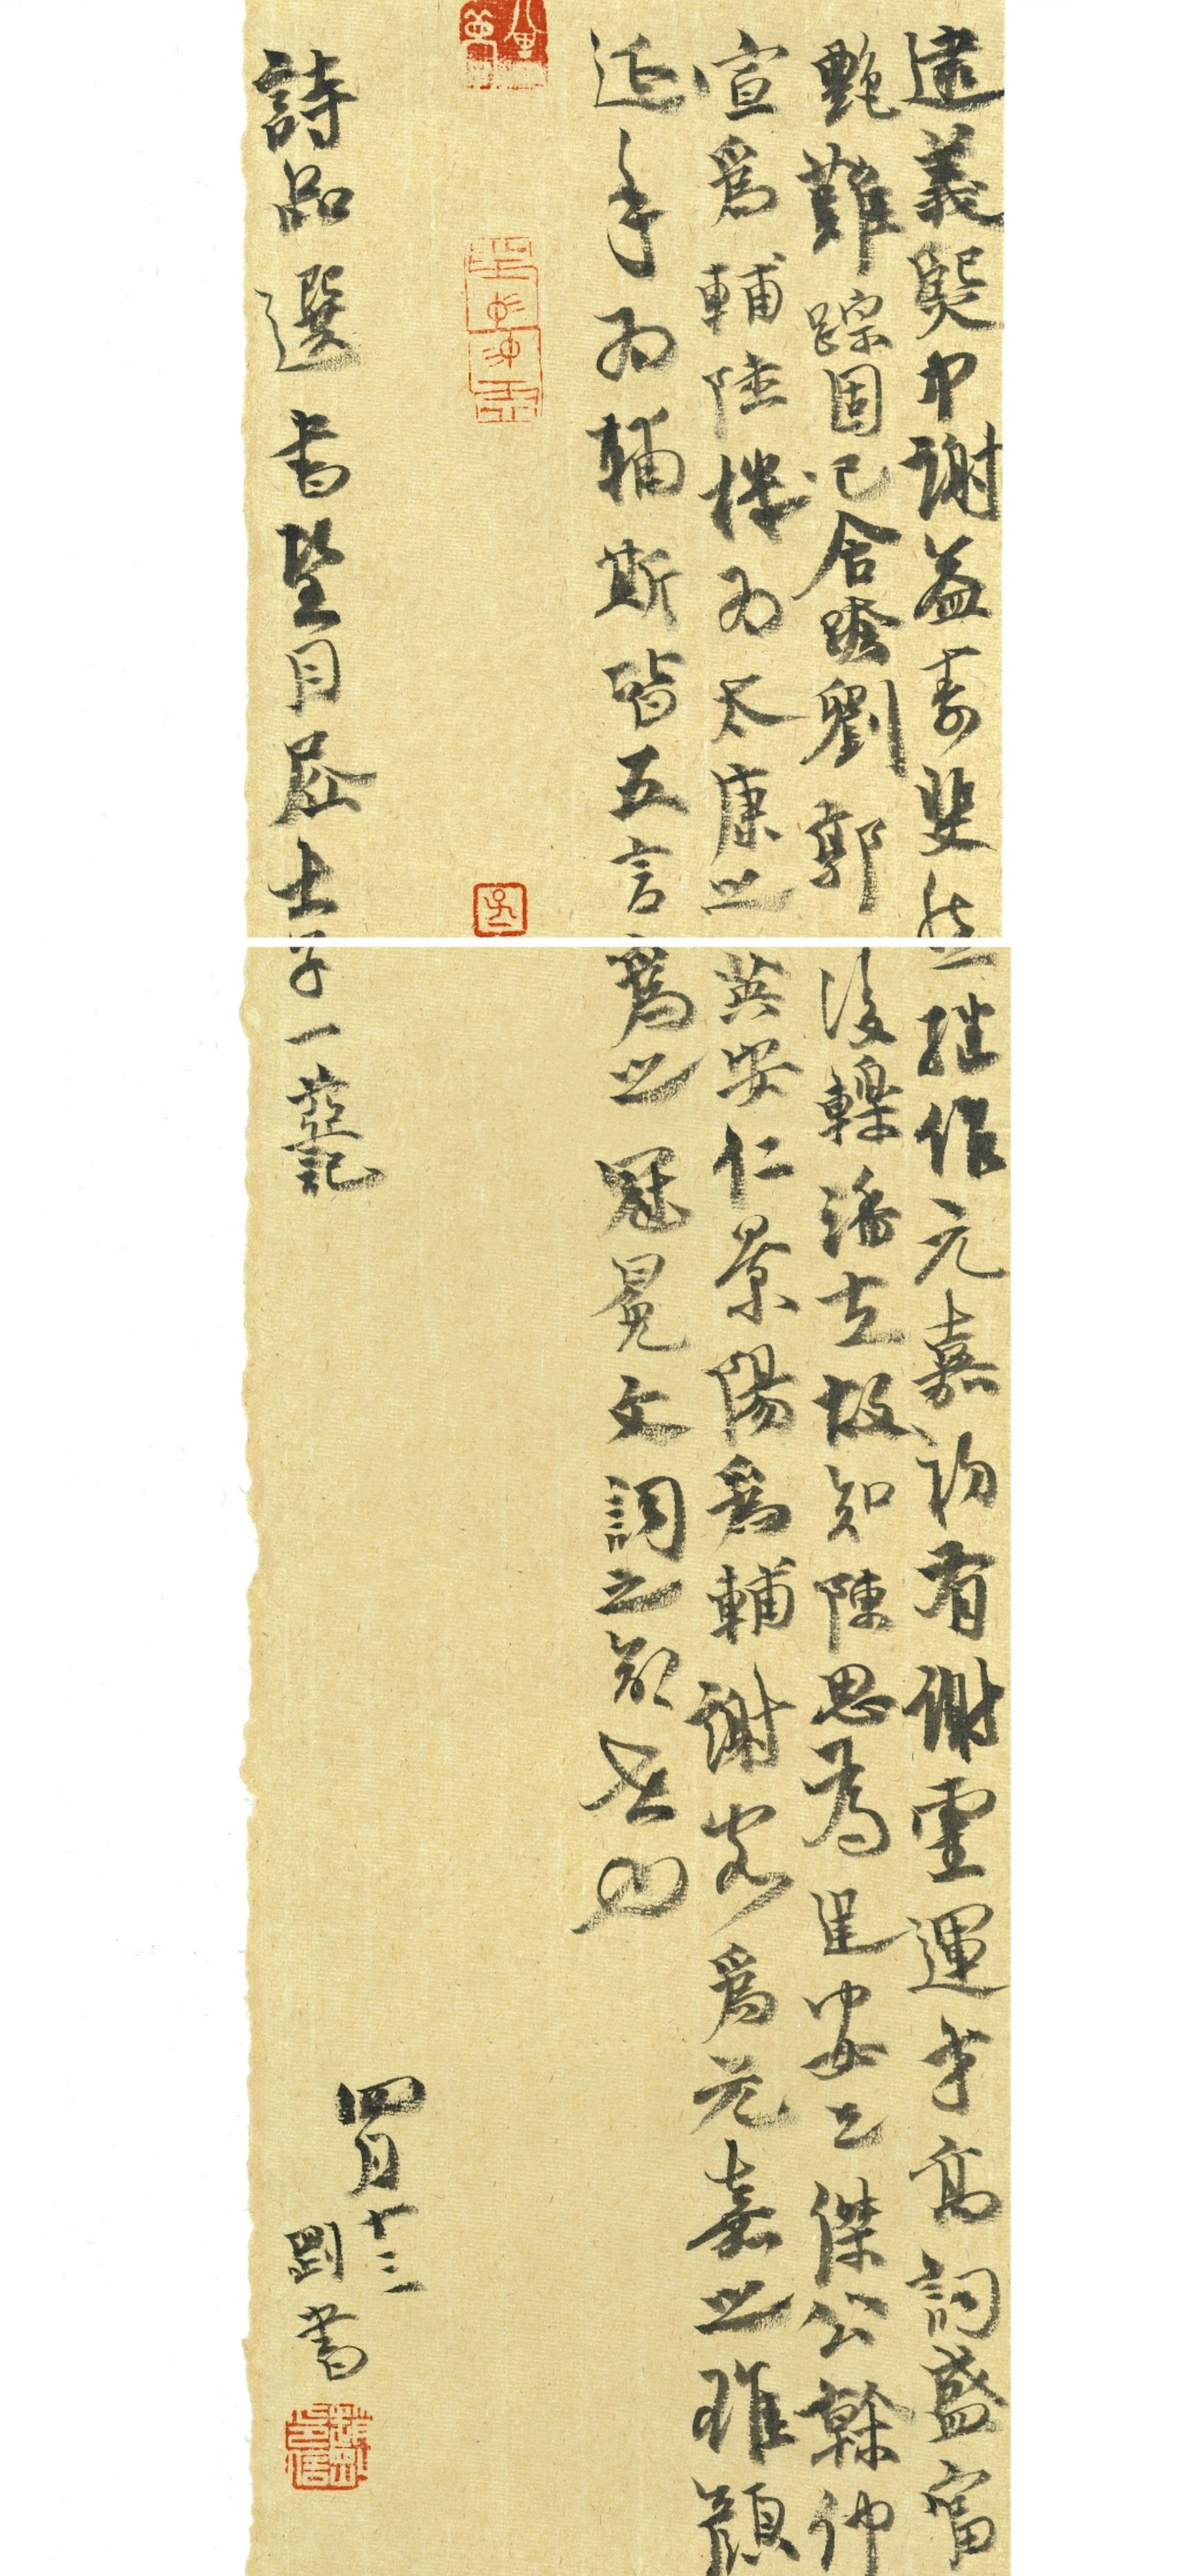 逮義熙中謝益壽斐然繼作元嘉初有謝靈運才高詞盛富
艷難蹤固已含跨劉郭陵轢潘左故知陳思為建安之傑公幹仲
宣為輔陸機為太康之英安仁景陽為輔謝客為元嘉之雄顏
延年為輔斯皆五言爲之冠冕文詞之命世也
詩品選書
四月十三
劉書